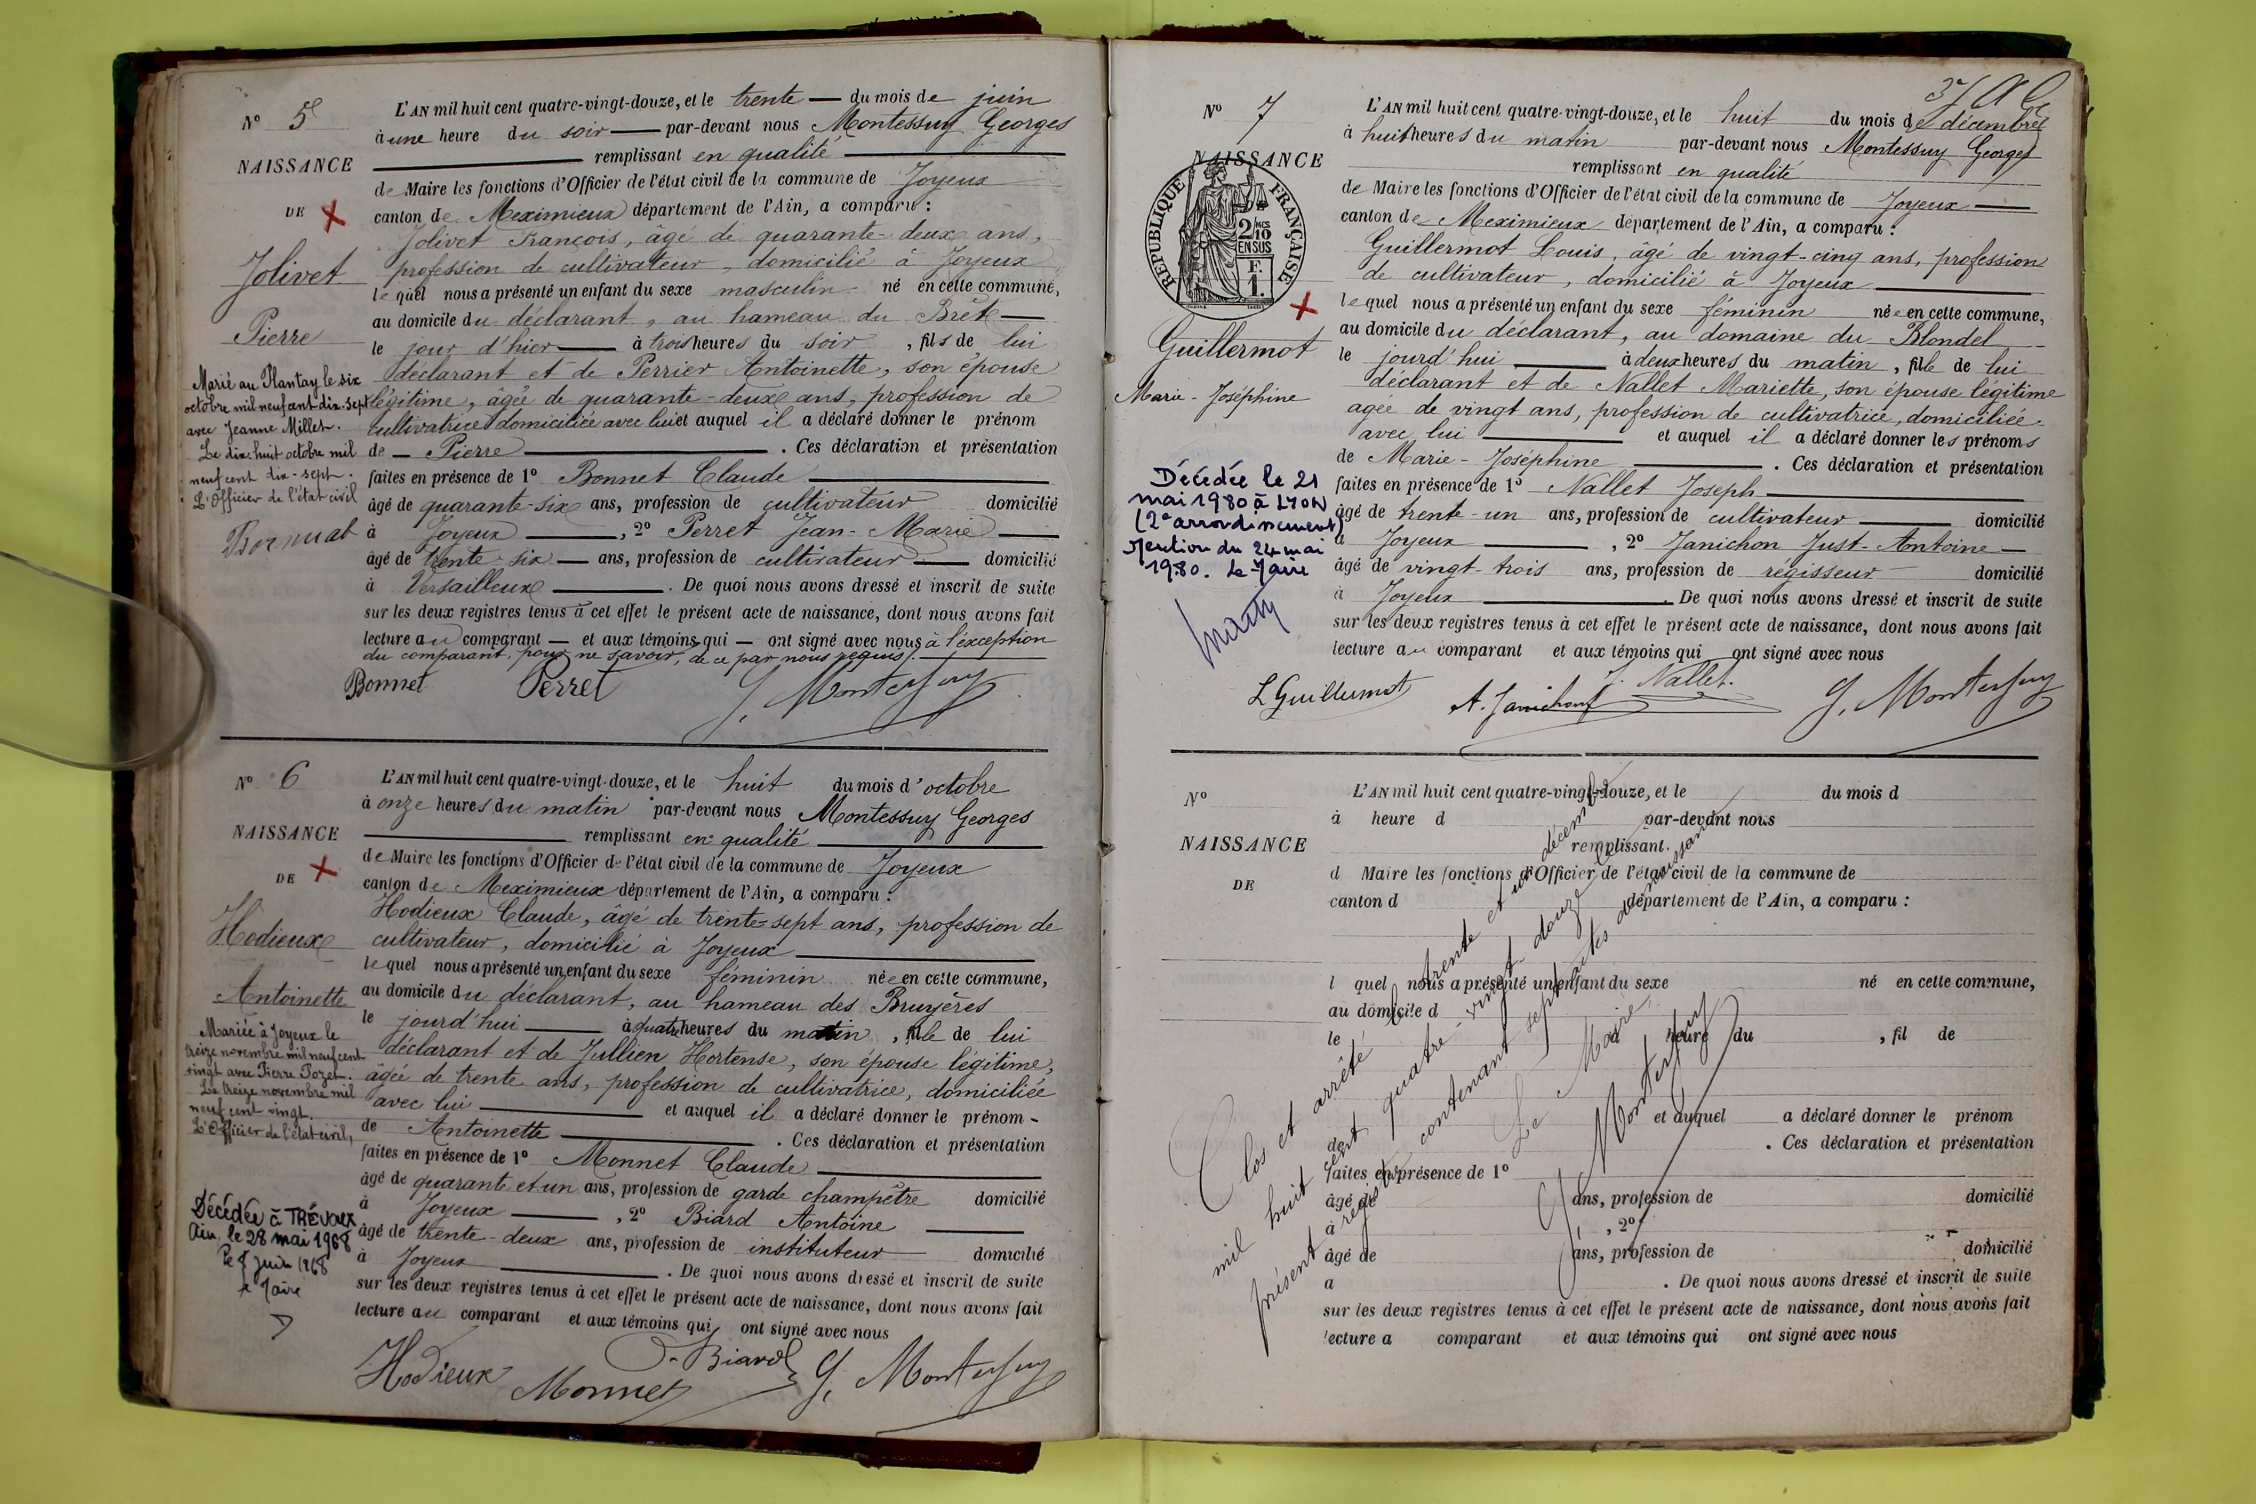 N° 5
NAISSANCE
DE
Jolivet
Pierre
Marié au Plantay le six
octobre mil neuf cent dix-sept
avec Jeanne Millet.
Le dix-huit octobre mil
neuf cent dix-sept.
L'Officier de l'état civil
L'AN mil huit cent quatre-vingt-douze, et le trente du mois de juin
à une heure du soir par-devant nous Montessuy Georges
remplissant en qualité
de Maire les fonctions d'Officier de l'état civil de la commune de Joyeux
canton de Meximieux département de l'Ain, a comparu :
Jolivet François, âgé de quarante-deux ans,
profession de cultivateur, domicilié à Joyeux
lequel nous a présenté un enfant du sexe masculin né en cette commune,
au domicile du déclarant, au hameau du Brêt
le jour d'hier à trois heures du soir, fils de lui
déclarant et de Perrier Antoinette, son épouse
légitime, âgée de quarante-deux ans, profession de
cultivatrice domiciliée avec lui et auquel il a déclaré donner le prénom
de Pierre. Ces déclaration et présentation
faites en présence de 1° Bonnet Claude
âgé de quarante-six ans, profession de cultivateur domicilié
à Joyeux, 2° Perret Jean-Marie
âgé de trente-six ans, profession de cultivateur domicilié
à Versailleux. De quoi nous avons dressé et inscrit de suite
sur les deux registres tenus à cet effet le présent acte de naissance, dont nous avons fait
lecture au comparant et aux témoins qui ont signé avec nous à l'exception
du comparant, pour ne savoir, de ce par nous requis.
Bonnet Perret G. Montessuy
N° 6
NAISSANCE
DE
Hodieux
Antoinette
Mariée à Joyeux le
treize novembre mil neuf cent
vingt avec Pierre Pozet.
Le treize novembre mil
neuf cent vingt.
L'Officier de l'état civil,
Décédée à TRÉVOUX
Ain, le 28 mai 1968
Le 8 Juin 1968
le Maire
L'AN mil huit cent quatre-vingt-douze, et le huit du mois d'octobre
à onze heures du matin par-devant nous Montessuy Georges
remplissant en qualité
de Maire les fonctions d'Officier de l'état civil de la commune de Joyeux
canton de Meximieux département de l'Ain, a comparu :
Hodieux Claude, âgé de trente-sept ans, profession de
cultivateur, domicilié à Joyeux
lequel nous a présenté un enfant du sexe féminin née en cette commune,
au domicile du déclarant, au hameau des Bruyères
le jourd'hui à quatre heures du matin, fille de lui
déclarant et de Jullien Hortense, son épouse légitime,
âgée de trente ans, profession de cultivatrice, domiciliée
avec lui et auquel il a déclaré donner le prénom
de Antoinette. Ces déclaration et présentation
faites en présence de 1° Monnet Claude
âgé de quarante et un ans, profession de garde champêtre domicilié
à Joyeux, 2° Biard Antoine
âgé de trente-deux ans, profession de instituteur domicilié
à Joyeux. De quoi nous avons dressé et inscrit de suite
sur les deux registres tenus à cet effet le présent acte de naissance, dont nous avons fait
lecture au comparant et aux témoins qui ont signé avec nous
Hodieux Monnet Biard G. Montessuy
37
N° 7
NAISSANCE
RÉPUBLIQUE FRANÇAISE
2/10
EN SUS
F.
1.
Guillermot
Marie-Joséphine
Décédée le 21
mai 1980 à LYON
(2e arrondissement)
Mention du 24 mai
1980. Le Maire
L'AN mil huit cent quatre-vingt-douze, et le huit du mois de décembre
à huit heures du matin par-devant nous Montessuy Georges
remplissant en qualité
de Maire les fonctions d'Officier de l'état civil de la commune de Joyeux
canton de Meximieux département de l'Ain, a comparu :
Guillermot Louis, âgé de vingt-cinq ans, profession
de cultivateur, domicilié à Joyeux
lequel nous a présenté un enfant du sexe féminin née en cette commune,
au domicile du déclarant, au domaine du Blondel
le jourd'hui à deux heures du matin, fille de lui
déclarant et de Nallet Mariette, son épouse légitime
agée de vingt ans, profession de cultivatrice, domiciliée
avec lui et auquel il a déclaré donner les prénoms
de Marie-Joséphine. Ces déclaration et présentation
faites en présence de 1° Nallet Joseph
âgé de trente-un ans, profession de cultivateur domicilié
à Joyeux, 2° Janichon Just-Antoine
âgé de vingt-trois ans, profession de régisseur domicilié
à Joyeux. De quoi nous avons dressé et inscrit de suite
sur les deux registres tenus à cet effet le présent acte de naissance, dont nous avons fait
lecture au comparant et aux témoins qui ont signé avec nous
L Guillermot A. Janichon J. Nallet. G. Montessuy
N°
NAISSANCE
DE
L'AN mil huit cent quatre-vingt-douze, et le du mois d
à heure d par-devant nous
remplissant
d Maire les fonctions d'Officier de l'état civil de la commune de
canton d département de l'Ain, a comparu :
l quel nous a présenté un enfant du sexe né en cette commune,
au domicile d
le à heure du , fil de
et auquel a déclaré donner le prénom
de . Ces déclaration et présentation
faites en présence de 1°
âgé de ans, profession de domicilié
à , 2°
âgé de ans, profession de domicilié
a . De quoi nous avons dressé et inscrit de suite
sur les deux registres tenus à cet effet le présent acte de naissance, dont nous avons fait
lecture a comparant et aux témoins qui ont signé avec nous
Clos et arrêté le trente et un décembre
mil huit cent quatre-vingt-douze le
présent registre contenant sept actes de naissance
Le Maire,
G. Montessuy